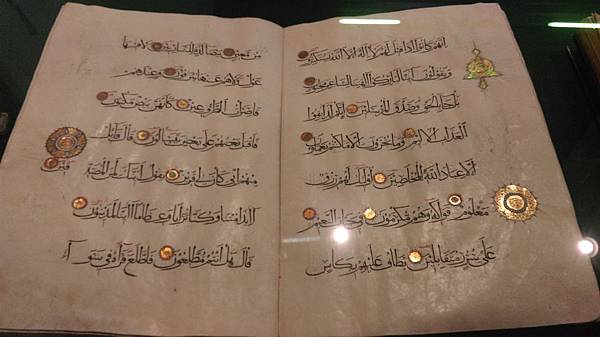 إنهم كانوا إذا قيل لهم لا إله إلا الله يستكبرون
ويقولون أئنا لتاركوا آلهتنا لشاعر مجنون
بل جاء بالحق وصدق المرسلين إنكم لذائقوا
العذاب الأليم وما تجزون إلا ما كنتم تعملون
إلا عباد الله المخلصين أولئك لهم رزق
معلوم فواكه وهم مكرمون في جنات النعيم
على سرر متقابلين يطاف عليهم بكأس
من معين بيضاء لذة للشاربين لا فيها
غول ولا هم عنها ينزفون وعندهم
قاصرات الطرف عين كأنهن بيض مكنون
فأقبل بعضهم على بعض يتساءلون قال قائل
منهم إني كان لي قرين يقول أئنك لمن المصد
قين
أئذا متنا وكنا ترابا وعظاما أئنا لمدينون
قال هل أنتم مطلعون فاطلع فرآه في سواء